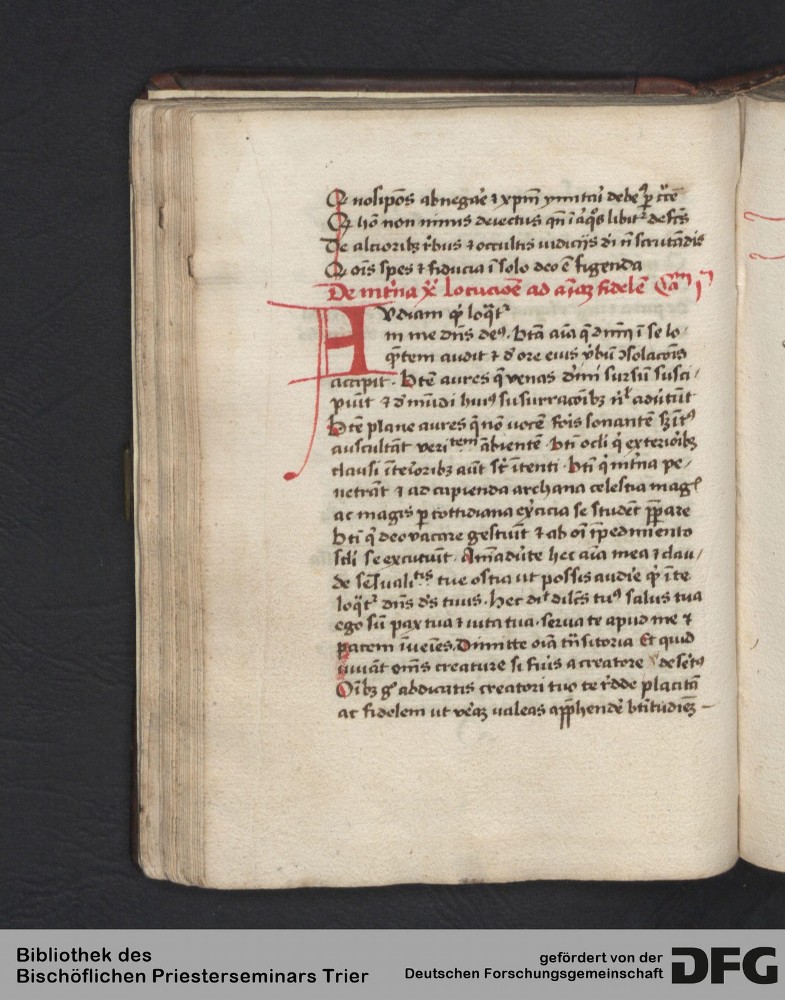 Q nosipōs abnegar̄e ⁊ xpm̄ ymitari debem⁹ p̱ crucē
Q hō non nimis deiectus qn̄ ī aliqͦs libitᷣ defcūs
De alcioribꝫ rebus ⁊ occultis iudicijs dī nō scrutādis
Q oīs spes ⁊ fiducia ī solo deo ē figenda
De int̄na xp̄i locucioē ad aīaꝫ fidelē Caᵐ iᵐ
Audiam qͥ loqᷣtᷣ
in me dn̄s deꝰ. Btā aīa q̄ dn̄m ī se lo
quētem audit ⁊ d̓ ore eius v̓bū ꝯsolacōis
accipit. Btē aures q̄ venas diuini sursū susci
piūt ⁊ d̓ mūdi huiꝰ susurracōibꝫ nl̓ adūtūt
Btē plane aures q̄ nō vocē foris sonantē sꝫ ītꝰ
auscultāt veritatem abientē. btī ocli qͥ exteriorībꝫ
clausi īterioribꝫ aūt st̄ ītenti. btī qͥ int̄na pe
netrāt ⁊ ad capienda archana celestia magꝭ
ac magis p̱ cottidiana ex̓cicia se studēt p̄parare
btī qͥ deo vacare gestiūt ⁊ ab oī īpedimento
scl̓i se excutiūt. Aīaduerte hec aīa mea ⁊ clau
de sēsualitatis tue ostia ut possis audire qͥ īte
loqᷣtᷣ dn̄s ds̄ tuus. hec dicit dilcūs tuꝰ salus tua
ego sū pax tua ⁊ uita tua. serua te apud me ⁊
pacem īueīes. Dimitte oīa trāsitoria Et quid
iuuāt om̄s creature si fuis a creatore desertꝰ
Oībꝫ g̊ abdicatis creatori tuo te redde placitā
ac fidelem ut verāꝫ ualeas app̄hendere btītudieꝫ
Bibliothek des
Bischöflichen Priesterseminars Trier
gefördert von der
Deutschen Forschungsgemeinschaft
DFG